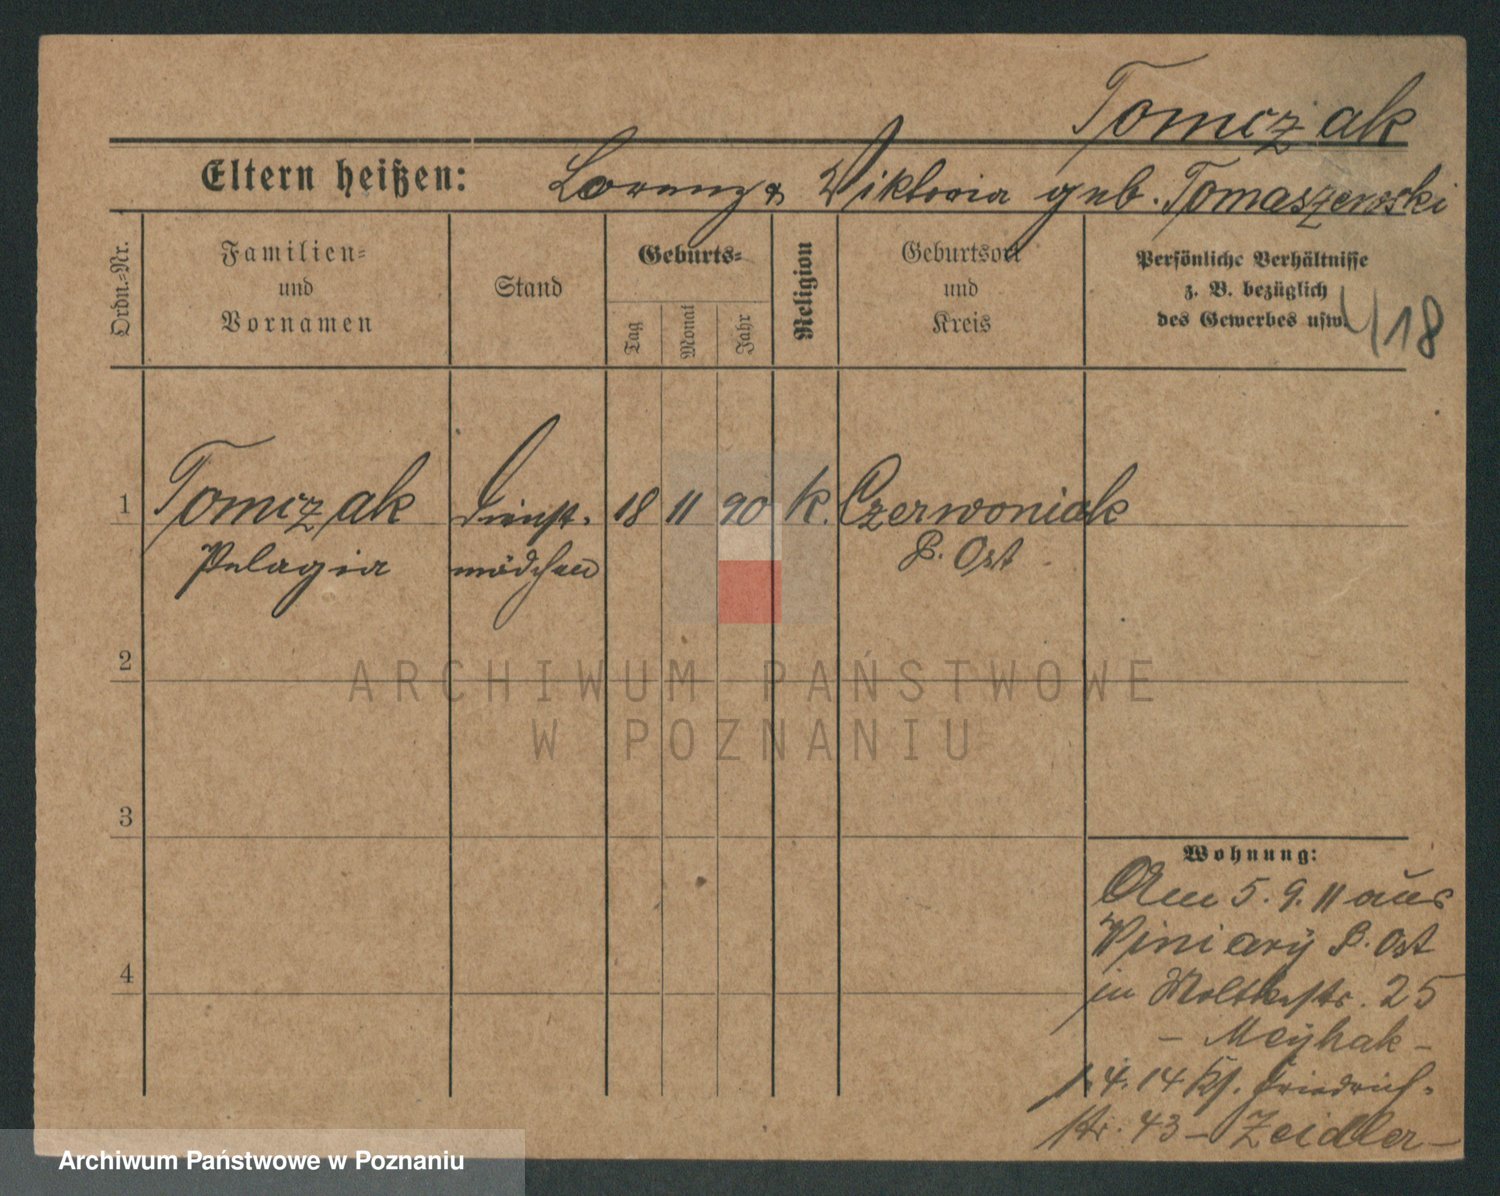 Tomczak
Eltern heißen: Lorenz & Viktoria geb. Tomaszewski
Ordn.-Nr.
Familien-
und
Vornamen
Stand
Geburts-
Tag
Monat
Jahr
Religion
Geburtsort
und
Kreis
Persönliche Verhältnisse
z. B. bezüglich
des Gewerbes usw.
418
1 Tomczak Dienst- 18 11 90 k. Czerwoniak
Pelagia mädchen P. Ost
2
ARCHIWUM PAŃSTWOWE
W POZNANIU
3
4
Wohnung:
Am 5.9.11 aus
Winiary P. Ost
in Moltkestr. 25
- Meyhak -
4.14 Friedrich-
str. 43 - Zeidler -
Archiwum Państwowe w Poznaniu